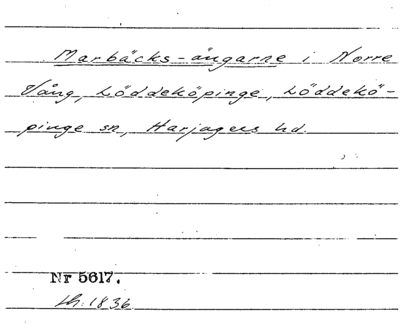 Marbäcks-ängarne i Norre
Vång, Löddeköpinge, Löddekö-
pinge sn, Harjagers hd.
Nr 5617.
Lh. 1836